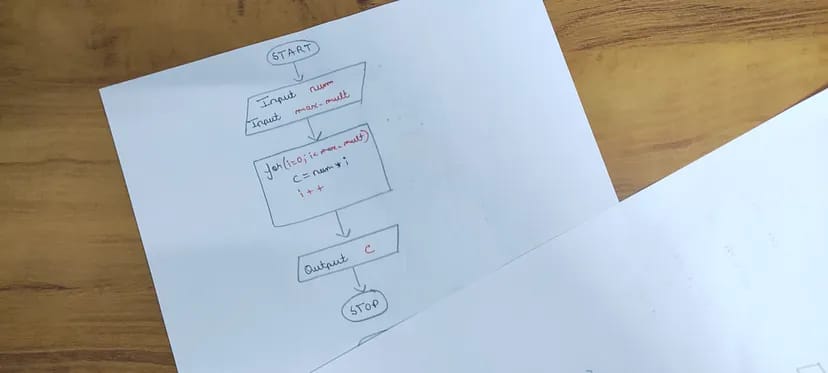 START
Input num
Input max-mult
for(i=0; i<max-mult)
c=num*i
i++
Output c
STOP